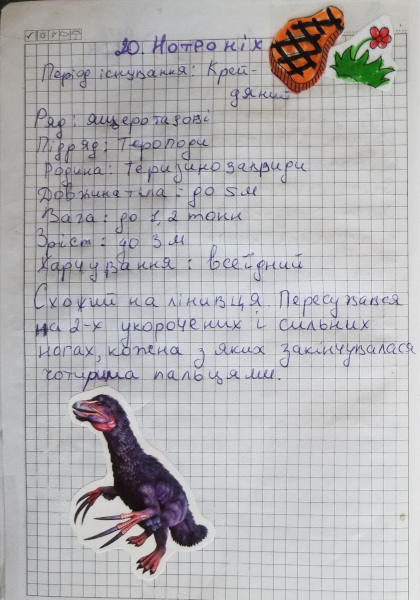 20. Нотроніх
Період існування: Крей-
дяний
Ряд: ящеротазові
Підряд: Тероподи
Родина: Теризинозавриди
Довжина тіла: до 5 м
Вага: до 1,2 тонн
Зріст: до 3 м
Харчування: всеїдний
Схожий на лінивця. Пересувався
на 2-х укорочених і сильних
ногах, кожена з яких закінчувалася
чотирма пальцями.